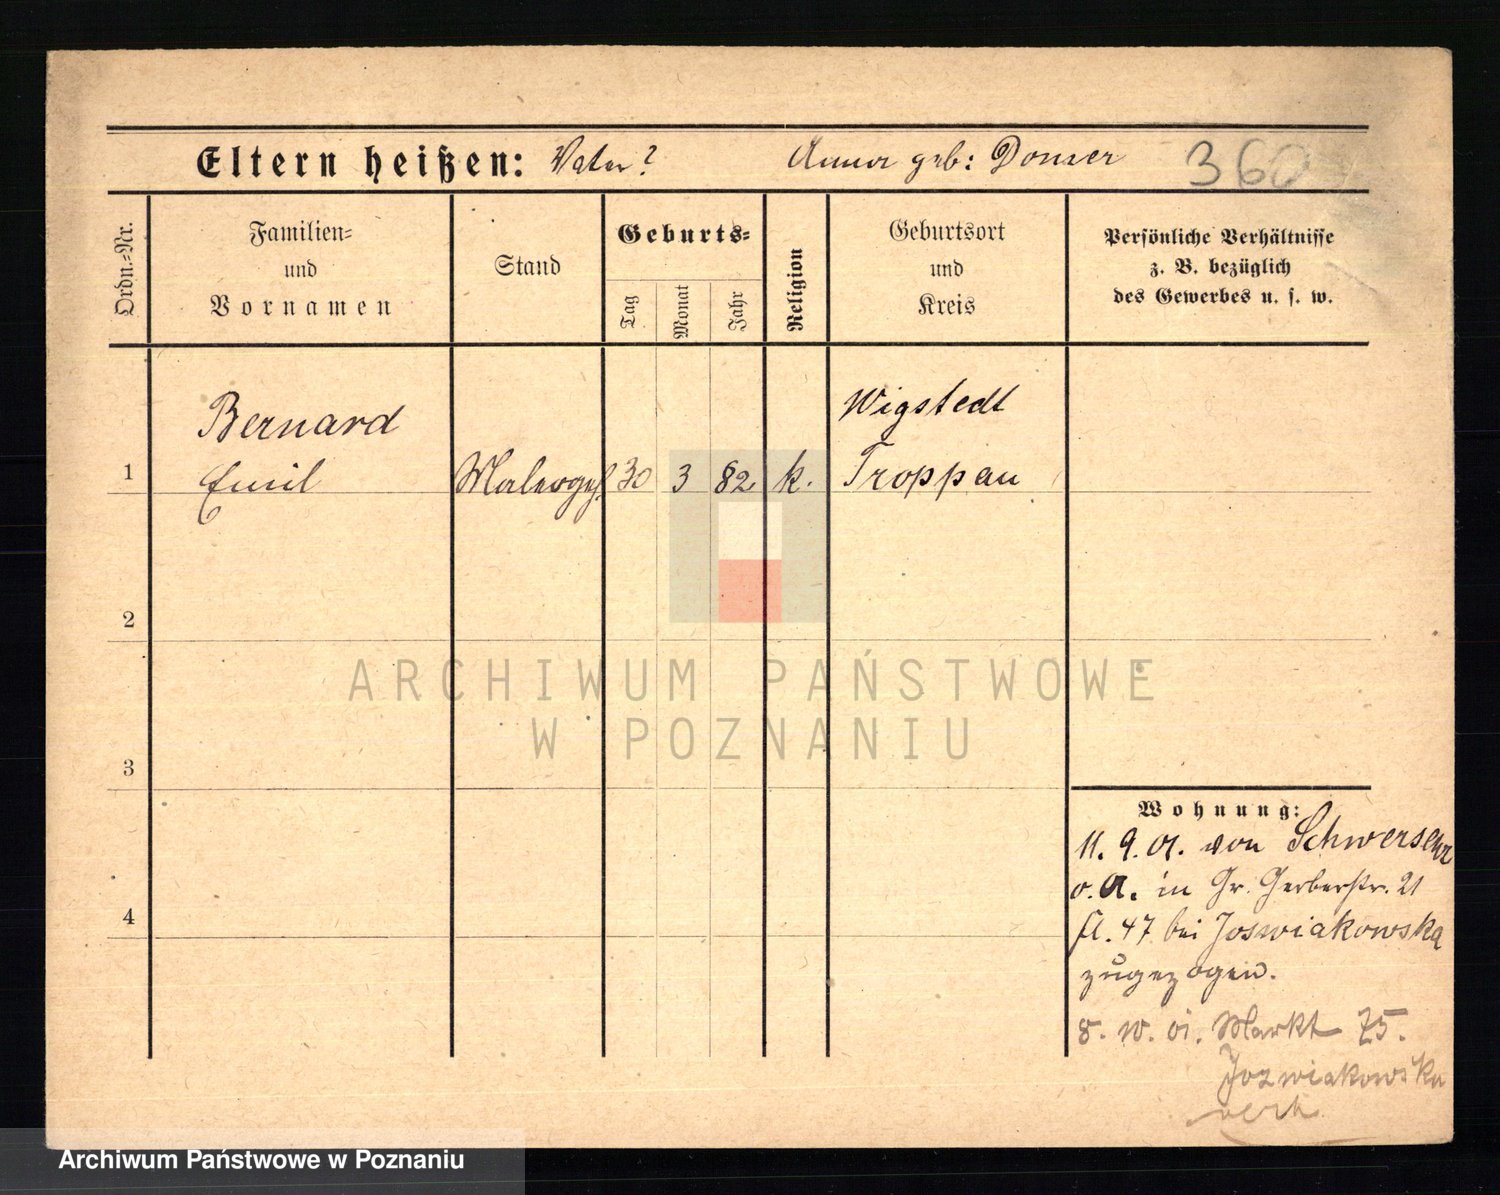 Eltern heißen: Vater? Anna geb: Donser 360
Ordn.-Nr.
Familien-
und
Vornamen
Stand
Geburts-
Tag
Monat
Jahr
Religion
Geburtsort
und
Kreis
Persönliche Verhältnisse
z. B. bezüglich
des Gewerbes u. s. w.
Bernard Wigstedt
1 Emil Malergeh. 30 3 82 k. Troppau
2
3
4
Wohnung:
11. 9. 01. von Schwersenz
o. A. in Gr. Gerberstr. 21
bei Joswiakowska
zugezogen.
8. 10. 01. Markt 75.
Jozwiakowska
ARCHIWUM PAŃSTWOWE
W POZNANIU
Archiwum Państwowe w Poznaniu